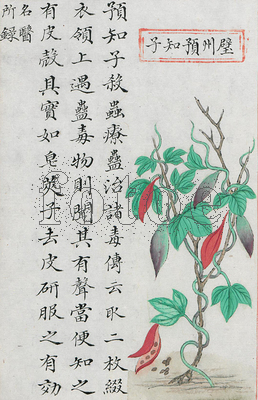 璧州預知子
預知子殺蟲療蠱治諸毒傳云取二枚綴
衣領上遇蠱毒物則聞其有聲當便知之
有皮殼其實如皂莢子去皮研服之有効
名醫
所錄